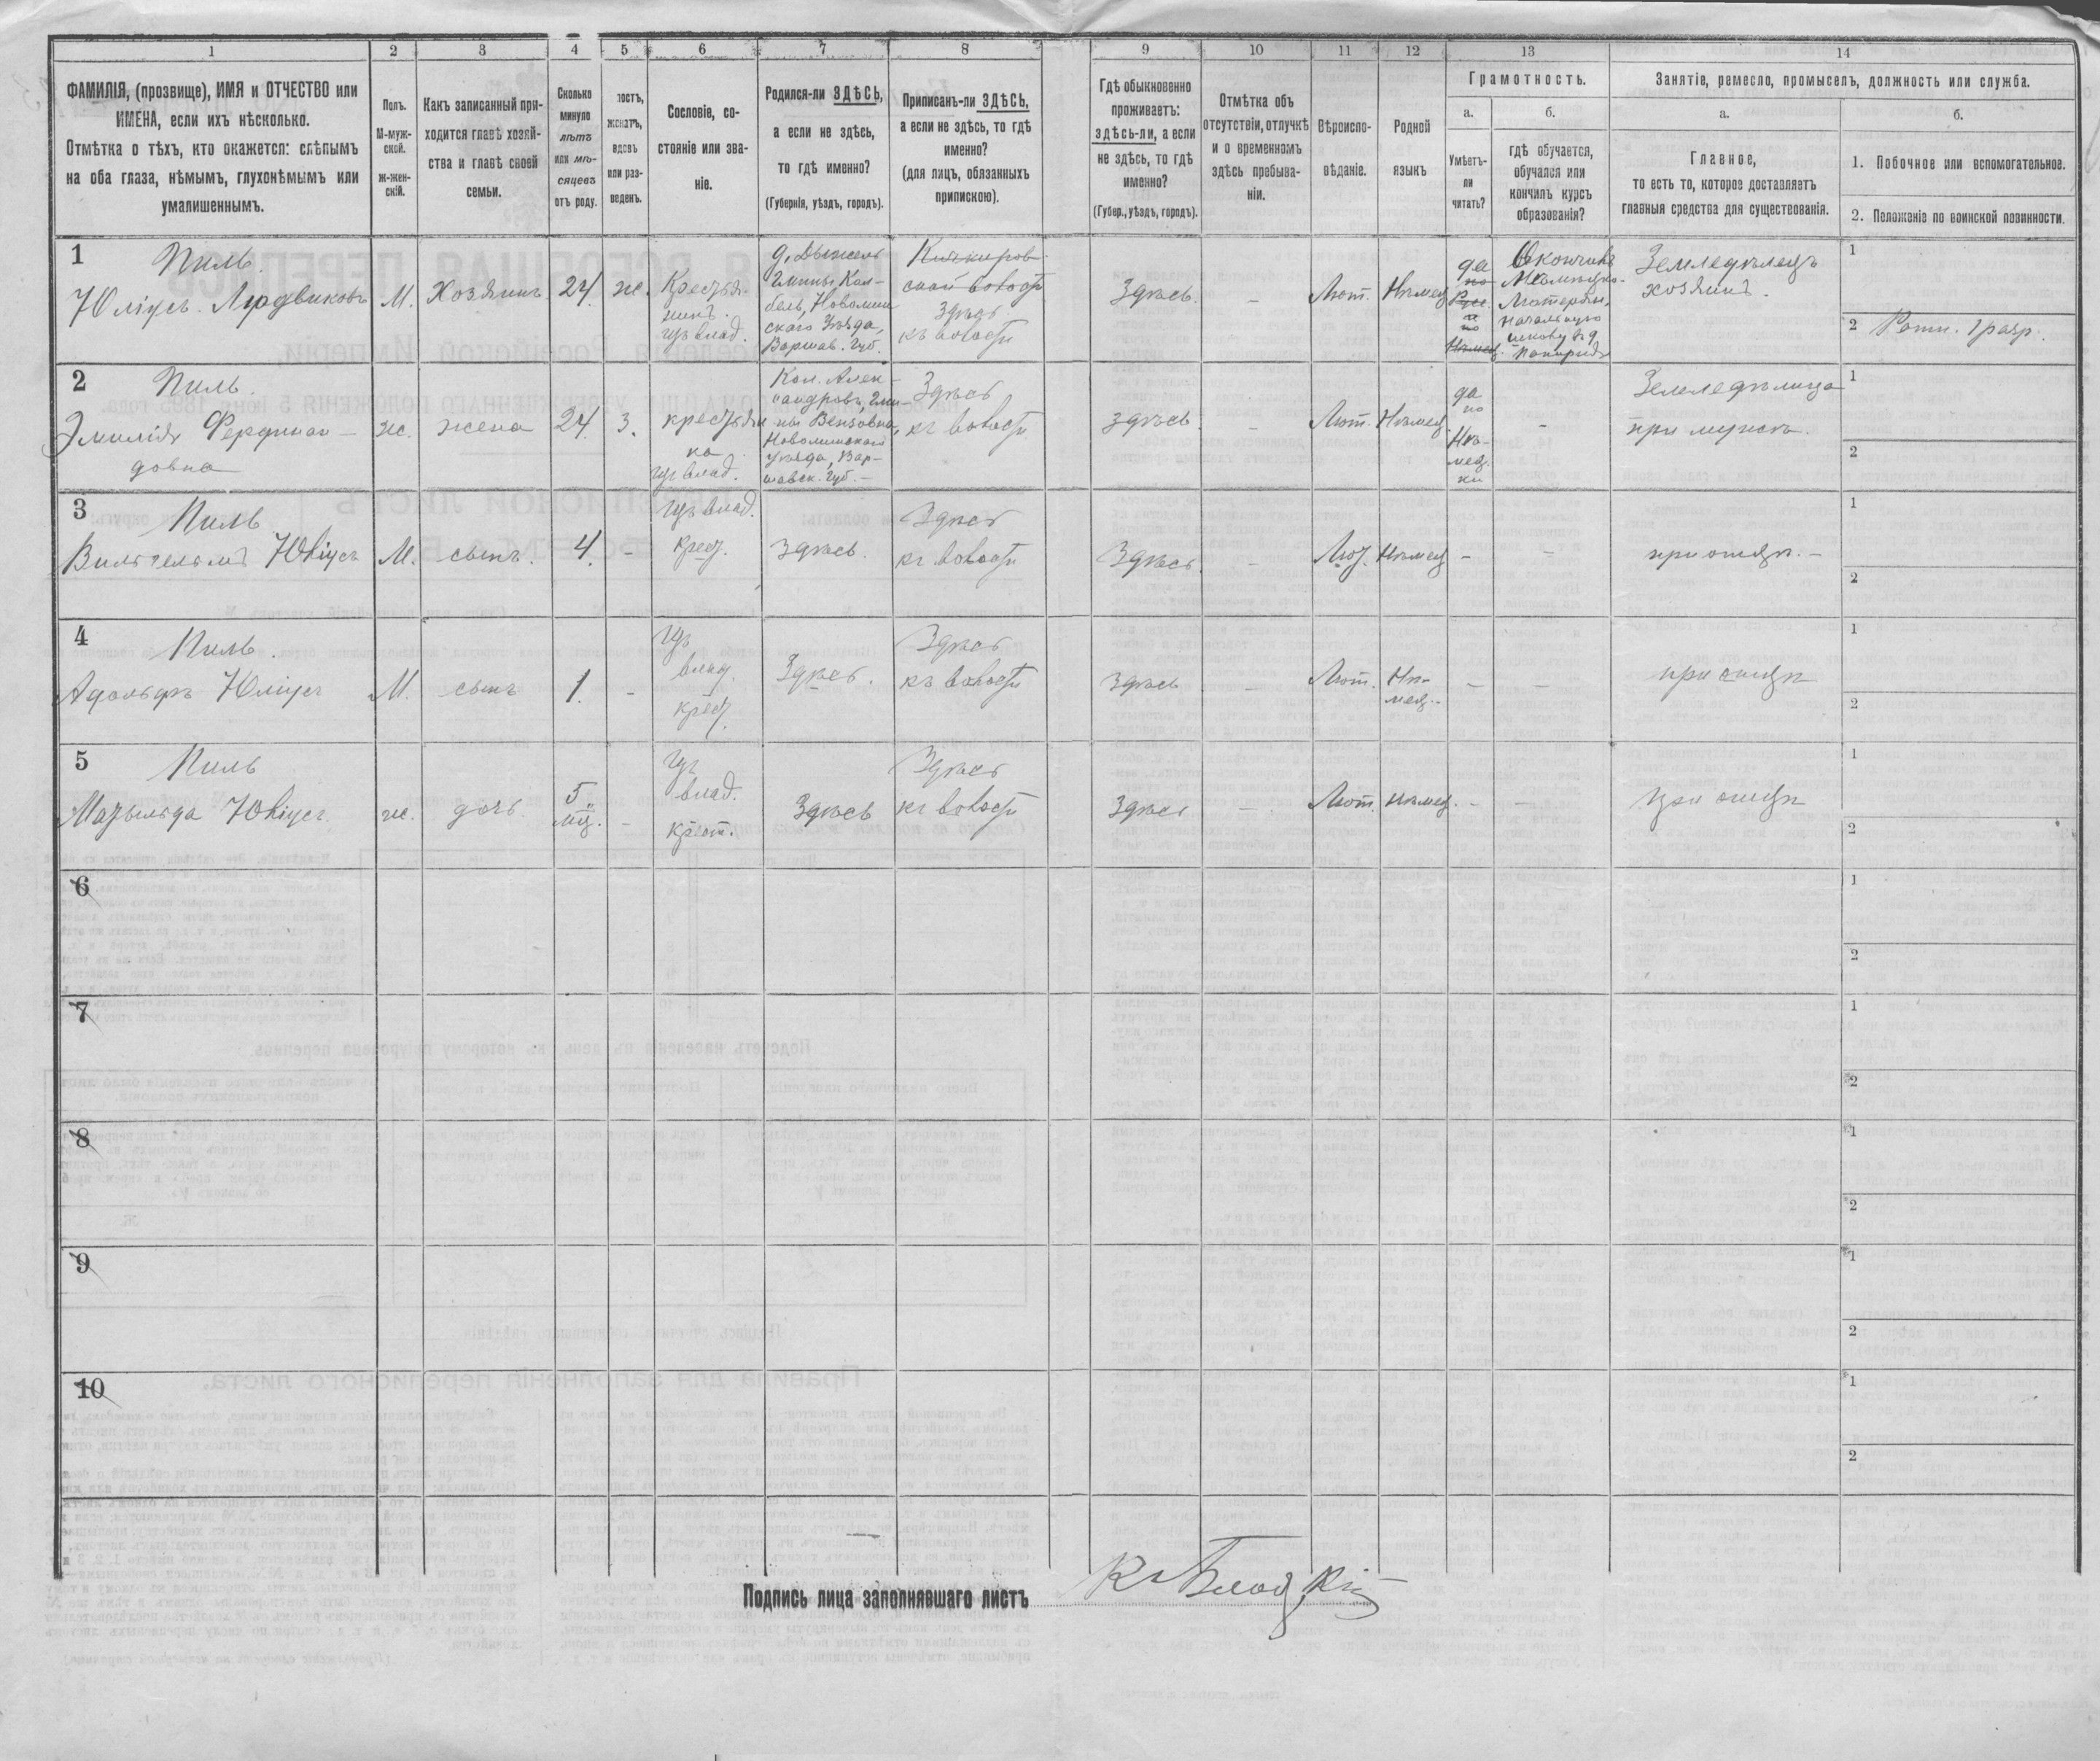 1 2 3 4 5 6 7 8 9 10 11 12 13 14
ФАМИЛІЯ, (прозвище), ИМЯ и ОТЧЕСТВО или
ИМЕНА, если ихъ нѣсколько.
Отмѣтка о тѣхъ, кто окажется: слѣпымъ
на оба глаза, нѣмымъ, глухонѣмымъ или
умалишеннымъ.
Полъ.
М-муж-
ской.
ж-жен-
скій.
Какъ записанный при-
ходится главѣ хозяй-
ства и главѣ своей
семьи.
Сколько
минуло
лѣтъ
или мѣ-
сяцевъ
отъ роду.
лостъ,
женатъ,
вдовъ
или раз-
веденъ.
Сословіе, со-
стояніе или зва-
ніе.
Родился-ли ЗДѢСЬ,
а если не здѣсь,
то гдѣ именно?
(Губернія, уѣздъ, городъ).
Приписанъ-ли ЗДѢСЬ,
а если не здѣсь, то гдѣ
именно?
(для лицъ, обязанныхъ
припискою).
Гдѣ обыкновенно
проживаетъ:
здѣсь-ли, а если
не здѣсь, то гдѣ
именно?
(Губер., уѣздъ, городъ).
Отмѣтка объ
отсутствіи, отлучкѣ
и о временномъ
здѣсь пребыва-
ніи.
Вѣроиспо-
вѣданіе.
Родной
языкъ
Грамотность.
а.
Умѣетъ-
ли
читать?
б.
гдѣ обучается,
обучался или
кончилъ курсъ
образованія?
Занятіе, ремесло, промыселъ, должность или служба.
а.
Главное,
то есть то, которое доставляетъ
главныя средства для существованія.
б.
1. Побочное или вспомогательное.
2. Положеніе по воинской повинности.
1
Пиль.
Юліусъ Людвиковъ
М.
Хозяинъ
24
ж.
Крестья-
нинъ.
изъ влад.
Новомин
скаго Уѣзда,
Варшав. Губ.
ской волости
Здѣсь
къ волости
Здѣсь.
–
Лют.
Нѣмец
да
по
Рус.
и
по
Нѣмец.
Окончилъ
Лютеран.
начальную
школу въ д.
Земледѣлецъ
хозяинъ.
1
2 Ратн. 1 разр.
2
Пиль.
Эмилія Фердинан-
довна
ж.
жена
24
З.
крестьян
ка
изъ влад.
Кол. Алек-
сандровъ, Гми-
Новоминскаго
Уѣзда, Вар-
шавск. Губ. –
Здѣсь
къ волости
здѣсь
–
Лют.
Нѣмец.
да
по
Нѣ-
мец-
ки
–
Земледѣлица
при мужѣ.
1
2
3
Пиль
Вильгельмъ Юліусъ
М.
сынъ.
4.
–
изъ влад.
крест.
здѣсь.
Здѣсь
къ волости
Здѣсь.
–
Лют.
Нѣмец
–
–
при отцѣ. –
1
2
4
Пиль.
Адольфъ Юліусъ
М.
сынъ
1.
–
изъ
влад.
крест.
Здѣсь.
Здѣсь
къ волости
здѣсь
–
Лют.
Нѣ-
мец.
–
–
при отцѣ
1
2
5
Пиль
Матильда Юліусъ.
ж.
дочь
5
мц.
–
изъ
влад.
крест.
Здѣсь
Здѣсь
къ волости
Здѣсь
–
Лют.
нѣмец.
–
–
при отцѣ
1
2
6
1
2
7
1
2
8
1
2
9
1
2
10
1
2
Подпись лица заполнявшаго листъ